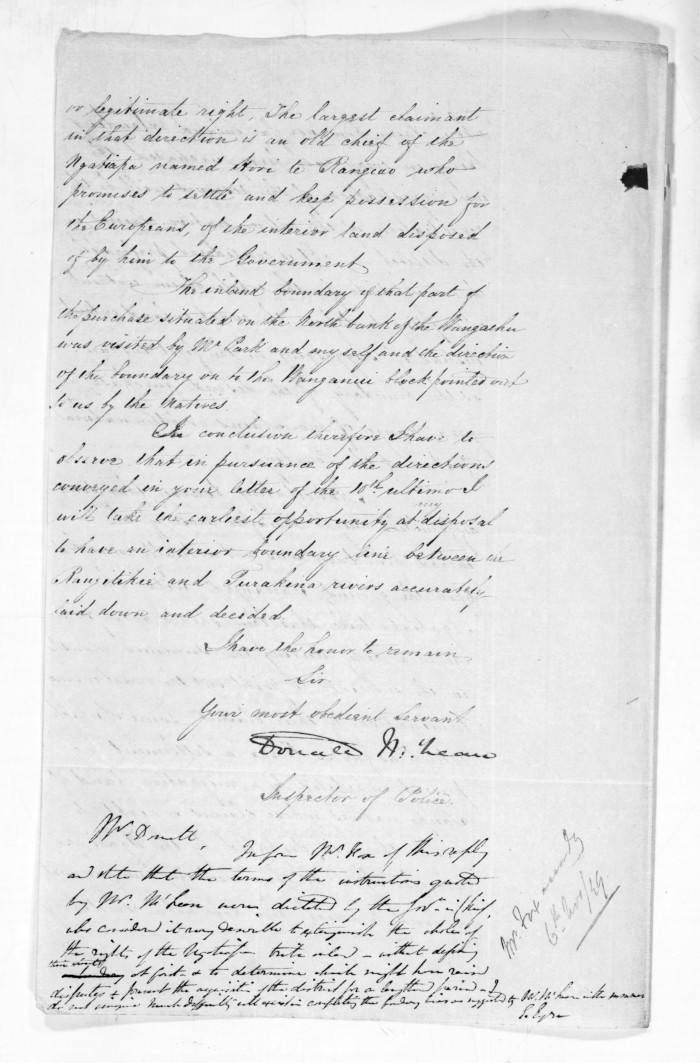 or legitimate right. The largest claimant
in that direction is an old chief of the
Ngatiapa named Hori te Rangiao who
promises to settle and keep possession for
the Europeans, of the interior land disposed
of by him to the Government.
The inland boundary of that part of
the purchase situated on the North bank of the Wangaehu
was visited by Mr Park and myself and the direction
of the boundary on to the Wanganui block pointed out
to us by the Natives.
In conclusion therefore I have to
observe that in pursuance of the directions
conveyed in your letter of the 10th ultimo I
will take the earliest opportunity at my disposal
to have an interior boundary line between the
Rangitikie and Turakina rivers accurately
laid down and decided
I have the honor to remain
Sir
Your most obedient Servant
Donald McLean
Inspector of Police
Mr. Domett,
Inform Mr. Fox of this reply
and state that the terms of the instructions quoted
by Mr. McLean were dictated by the Govr. in Chief,
who considered it very desirable to extinguish the whole of
the rights of the Ngatiapa tribe inland - without defining
their at first & to determine which might have raised
disputes & prevent the acquisition of the district for a lengthened period - I
do not imagine much difficulty will exist in completing the boundary lines as suggested by Mr. McLean in the summer
E. Eyre
Mr. Fox
6th Novr/49